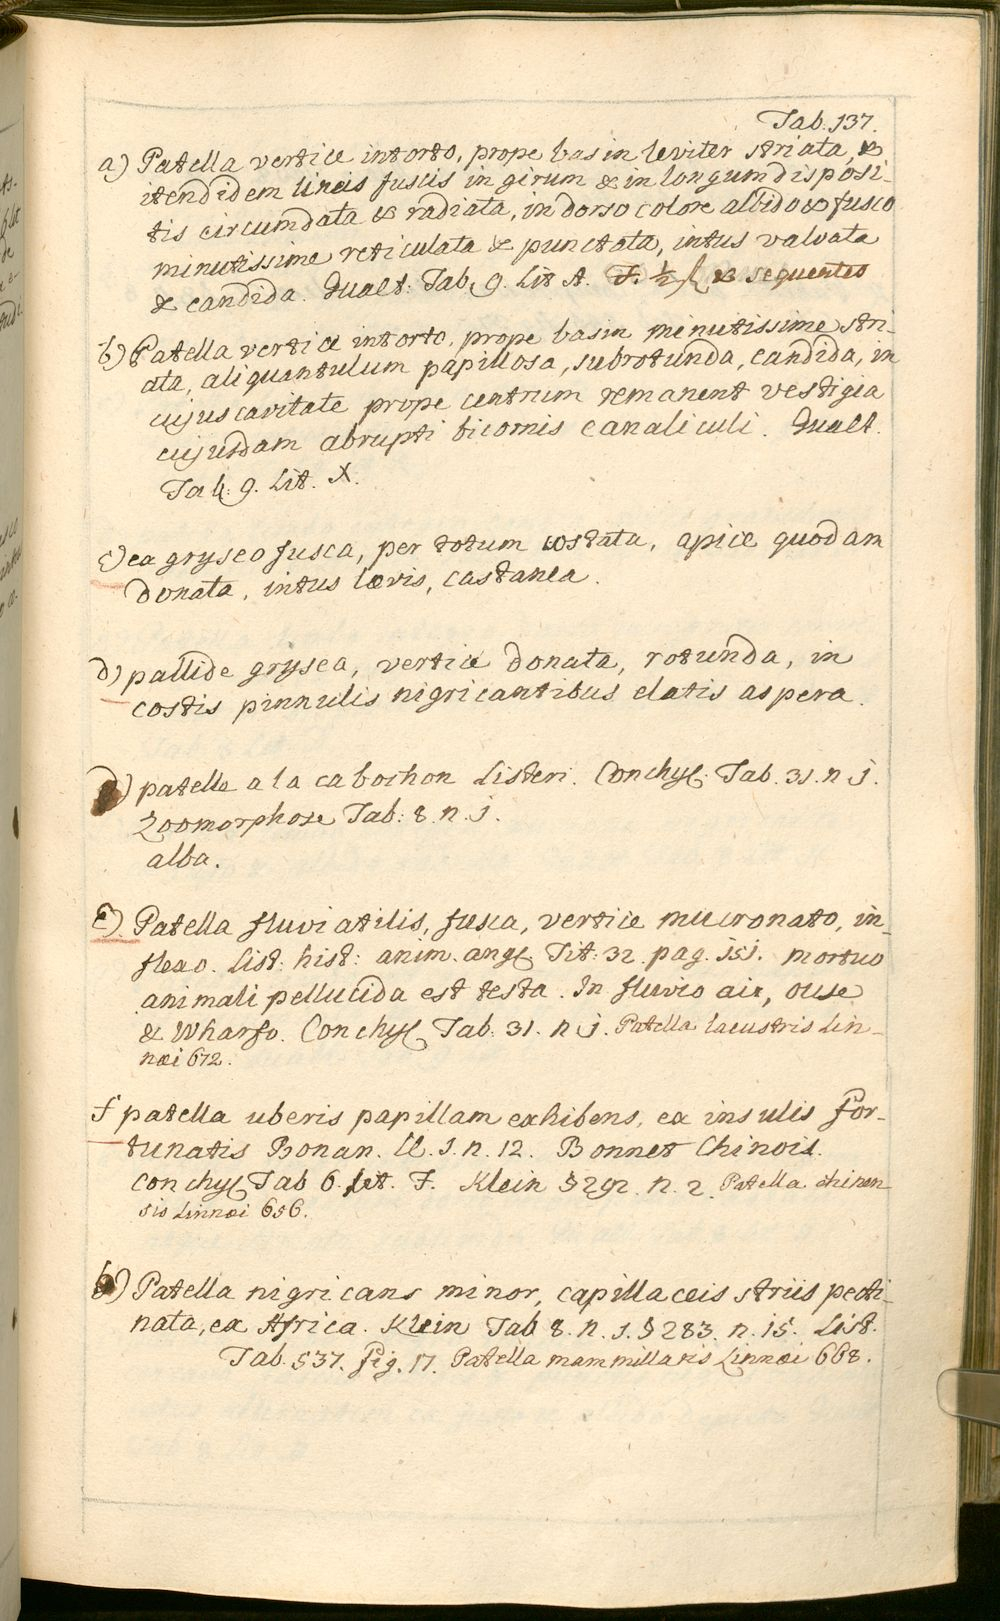 Tab. 137.
a) Patella vertice intorto, prope basin leviter striata, &
itendidem lineis fuscis in girum & in longum disposi-
tis circumdata & radiata, in dorso colore albido & fusco
minutissime reticulata & punctata, intus valvata
& candida. Gualt: Tab. 9. Lit A. & sequentes
b) Patella vertice intorto, prope basin minutissime stri-
ata, aliquantulum papillosa, subrotunda, candida, in
cujus cavitate prope centrum remanent vestigia
cujusdam abrupti bicornis canaliculi. Gualt.
Tab: 9. Lit. X.
c) ea gryseo fusca, per totum costata, apice quodam
donata, intus lævis, castanea.
d) pallide grysea, vertice donata, rotunda, in
costis pinnulis nigricantibus elatis aspera.
patella a la cabochon Listeri. Conchyl. Tab. 31. n j.
Zoomorphose Tab: 8. n. j.
alba.
e) Patella fluviatilis, fusca, vertice mucronato, in-
flexo. List: hist: anim. angl. Tit: 32. pag. 151. mortuo
animali pellucida est testa. In fluvio air, ouse
& Wharfo. Conchyl Tab. 31. n j. Patella lacustris Lin-
næi 672.
f patella uberis papillam exhibens, ex insulis for-
tunatis Bonan. Cl. 1. n. 12. Bonnet Chinois.
Conchyl Tab 6. Let. F. Klein § 292. n. 2. Patella chinen
sis Linnæi 656.
b) Patella nigricans minor, capillaceis striis pecti-
nata, ex Africa. Klein Tab 8. n. 1. § 283. n. 15. List.
Tab. 537. fig. 17. Patella mammillaris Linnæi 668.